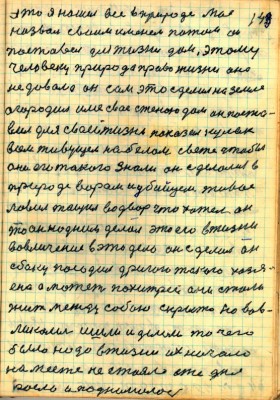 это я нашел все в природе мое
назвал своим именем потом он
поставил для жизни дом, этому
человеку природа право жизни она
не довала он сам это сделал на земле
огородил имя свое стеною дом он поста-
вил для своей жизни показал кулак
всем живущем на белом свете чтобы
они его такого знали он сделался в
природе вором и убийцем живое
ловил тащил во двор что хотел он
то он с ним делал это его в жизни
вовличение в это дело он сделал он
сбоку породил другого такого хозя-
ена а может похитрей они стали
жить между собою скрытно но вов-
ликали шли и делали то чего
было надо в жизни их начало
на месте не стояло оно для
было и поднималос